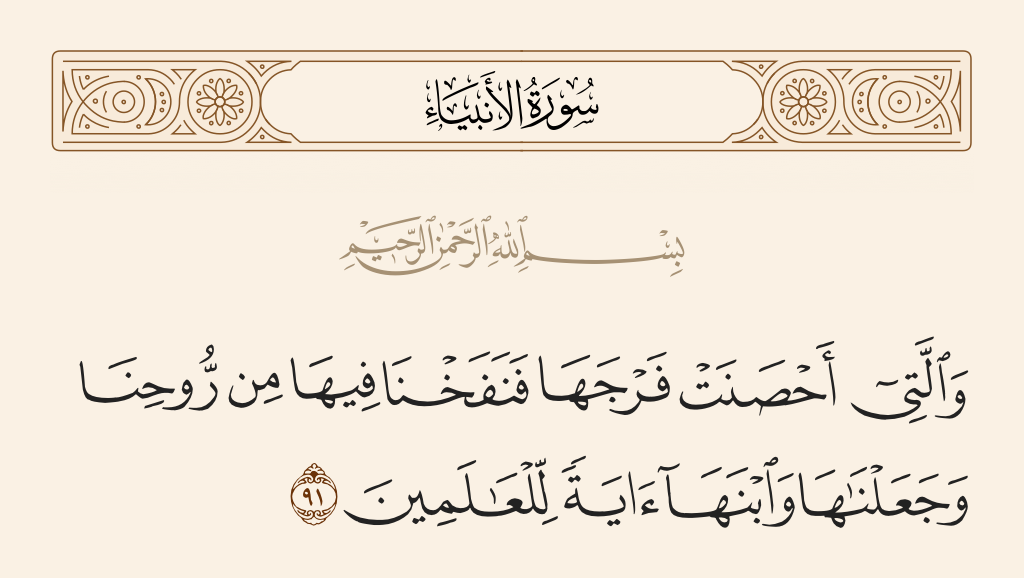 سُورَةُ الأَنبِيَاءِ
بِسْمِ ٱللَّهِ ٱلرَّحْمَٰنِ ٱلرَّحِيمِ
وَٱلَّتِىٓ أَحْصَنَتْ فَرْجَهَا فَنَفَخْنَا فِيهَا مِن رُّوحِنَا
وَجَعَلْنَٰهَا وَٱبْنَهَآ ءَايَةً لِّلْعَٰلَمِينَ ٩١